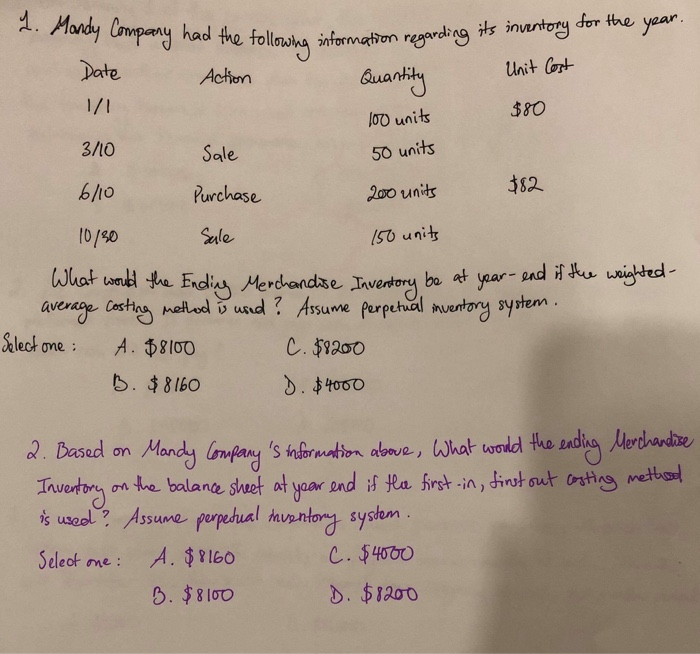 1. Mandy Company had the following information regarding its inventory for the year.
Date Action Quantity Unit Cost
1/1 100 units $80
3/10 Sale 50 units
6/10 Purchase 200 units $82
10/30 Sale 150 units
What would the Ending Merchandise Inventory be at year-end if the weighted-
average costing method is used? Assume perpetual inventory system.
Select one: A. $8100 C. $8200
B. $8160 D. $4000
2. Based on Mandy Company's information above, What would the ending Merchandise
Inventory on the balance sheet at year end if the first-in, first out costing method
is used? Assume perpetual inventory system.
Select one: A. $8160 C. $4000
B. $8100 D. $8200